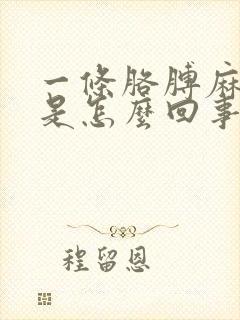 一條胳膊麻
是怎麼回事
程留恩